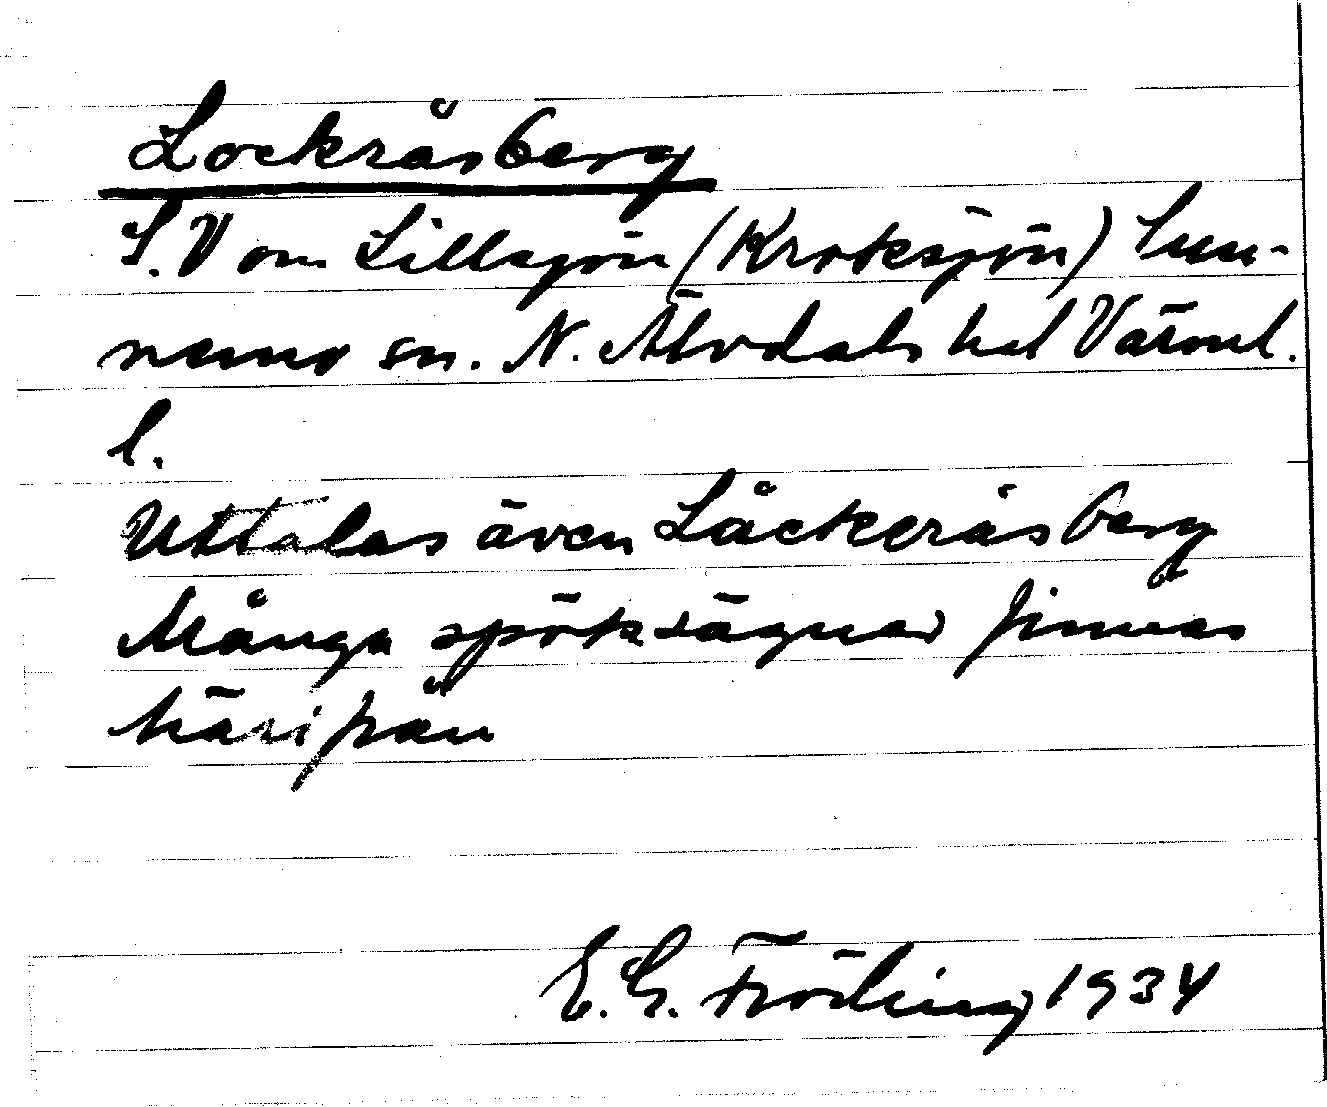 Lockråsberg
S.V om Lillsjön (Kroksjön) Sun-
nemo sn. N. Älvdals hd Värml.
l.
Uttalas även Låckeråsberg
Många spöksägner finnas
härifrån
E. G. Fröding 1934